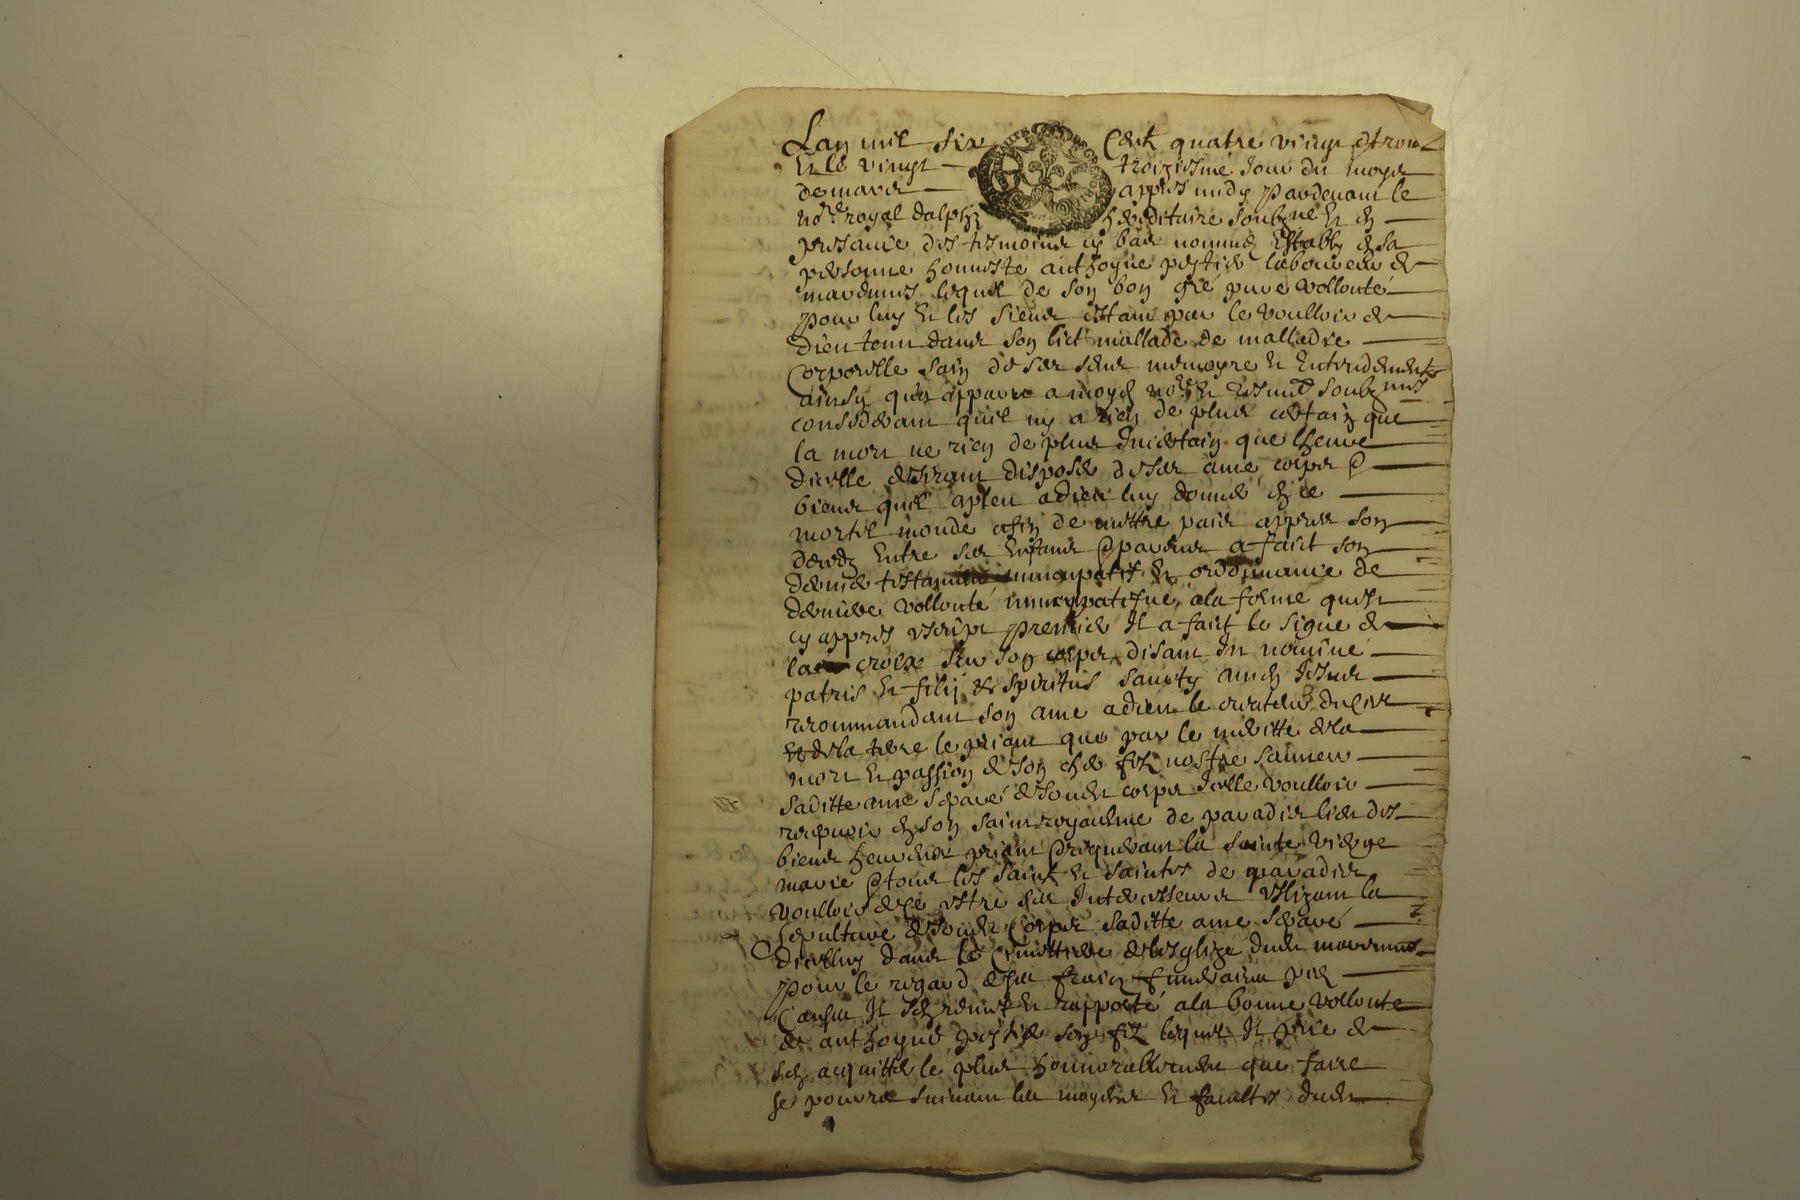 Lan mil six Cent quatre vingt et trois
Et le vingt troiziesme Jour du moys
de mars apprès midy Pardevant le
no.re royal dalphi héréditaire soubz.né Et en
presance des tesmoins cy bas nommés Estably en sa
personne honneste anthoyne laboureur de
lequel de son bon gré pure vollonté
pour luy Et les siens estant par le voulloir de
dieu tenu dans son lict mallade de malladie
Corporelle sain de ses sens memoyre Et Entendement
ainsy quen apparu a moyd no.re Et tesmoins soubz.nés
considerant quil ny a rien de plus certain que
la mort ne rien de plus Incertain que lheure
dicelle desirant disposer de ses ame corps et
biens quil a pleu a dieu luy donner en ce
mortel monde affin de mettre paix appres son
deces Entre ses Enfans et parens a faict son
dernier testament nuncupatif Et ordonnance de
derniere vollonté nuncupatifve a la forme quest
cy appres escript premier Il a faict le signe de
la croix sur son corps disant In nomine
patris Et filij Et spiritus sancty amen Jesus
recommandant son ame a dieu le createur du ciel
et de la terre le priant que par le meritte de la
mort Et passion de son cher filz nostre sauveur
saditte ame séparé de sondit corps Icelle voulloir
recepvoir en son saint royaulme de paradis lieu des
biens heureux priant et requerant la sainte vierge
marie et tous les saints Et saintes de paradis
voulloir de ce estre ses Intercesseurs Eslizant la
sepulture de sondit Corps saditte ame séparé
dicelluy dans le Cimettiere de lesglize dudit
pour le regard de ses frais funeraires pies
Causes Il sen remet Et rapporté a la bonne vollonte
de anthoyne son filz lequel Il prie de
sen acquitter le plus honnorablement que faire
se pourra suivant les moyens Et facultes dudit